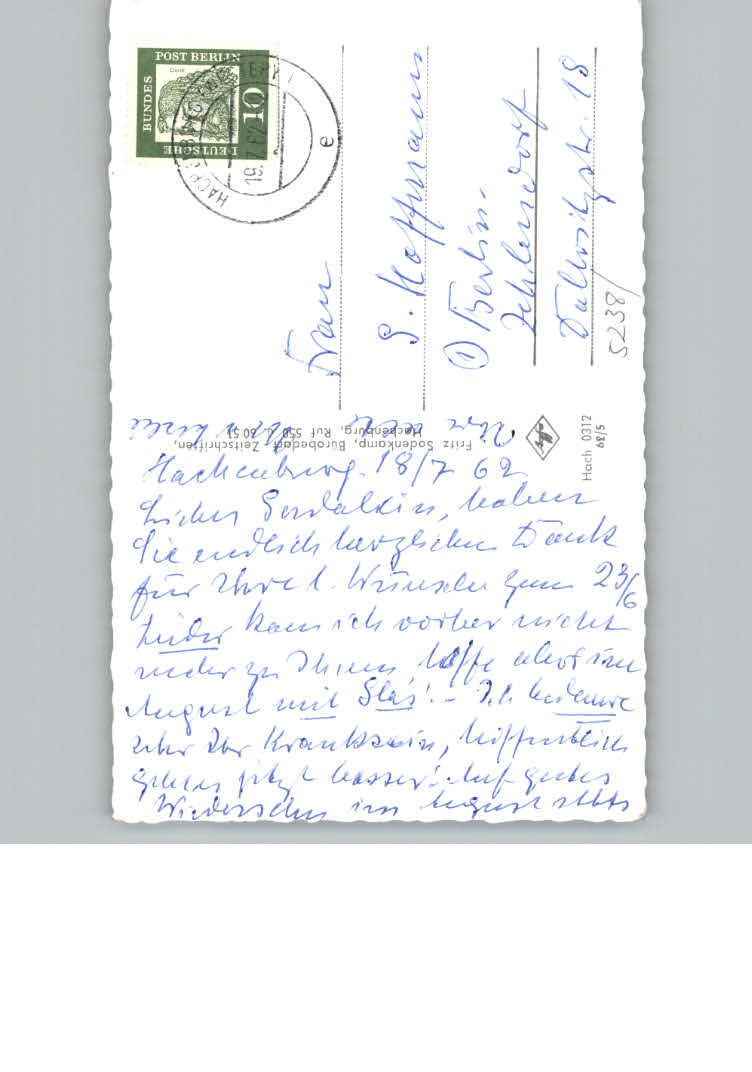 DEUTSCHE
BUNDES
POST BERLIN
10
Dürer
19.7.62
e
Frau
G. Hoffmann
① Berlin-
Zehlendorf
Dallwitzstr. 18
5238
Fritz Sodenkamp, Bürobedarf, Zeitschriften,
Hachenburg, Ruf 550 u. 60 51
Agfa
Hach 0312
62/5
Hachenburg. 18/7 62
haben
Sie endlich herzlichen Dank
für Ihre l. Wünsche zum 23/6
Leider kam ich vorher nicht
mehr zu Ihnen hoffe aber im
August mit - Ich bedaure
sehr Ihr Kranksein, hoffentlich
geht es jetzt besser! Auf gutes
Wiedersehn im August stets
Ihre